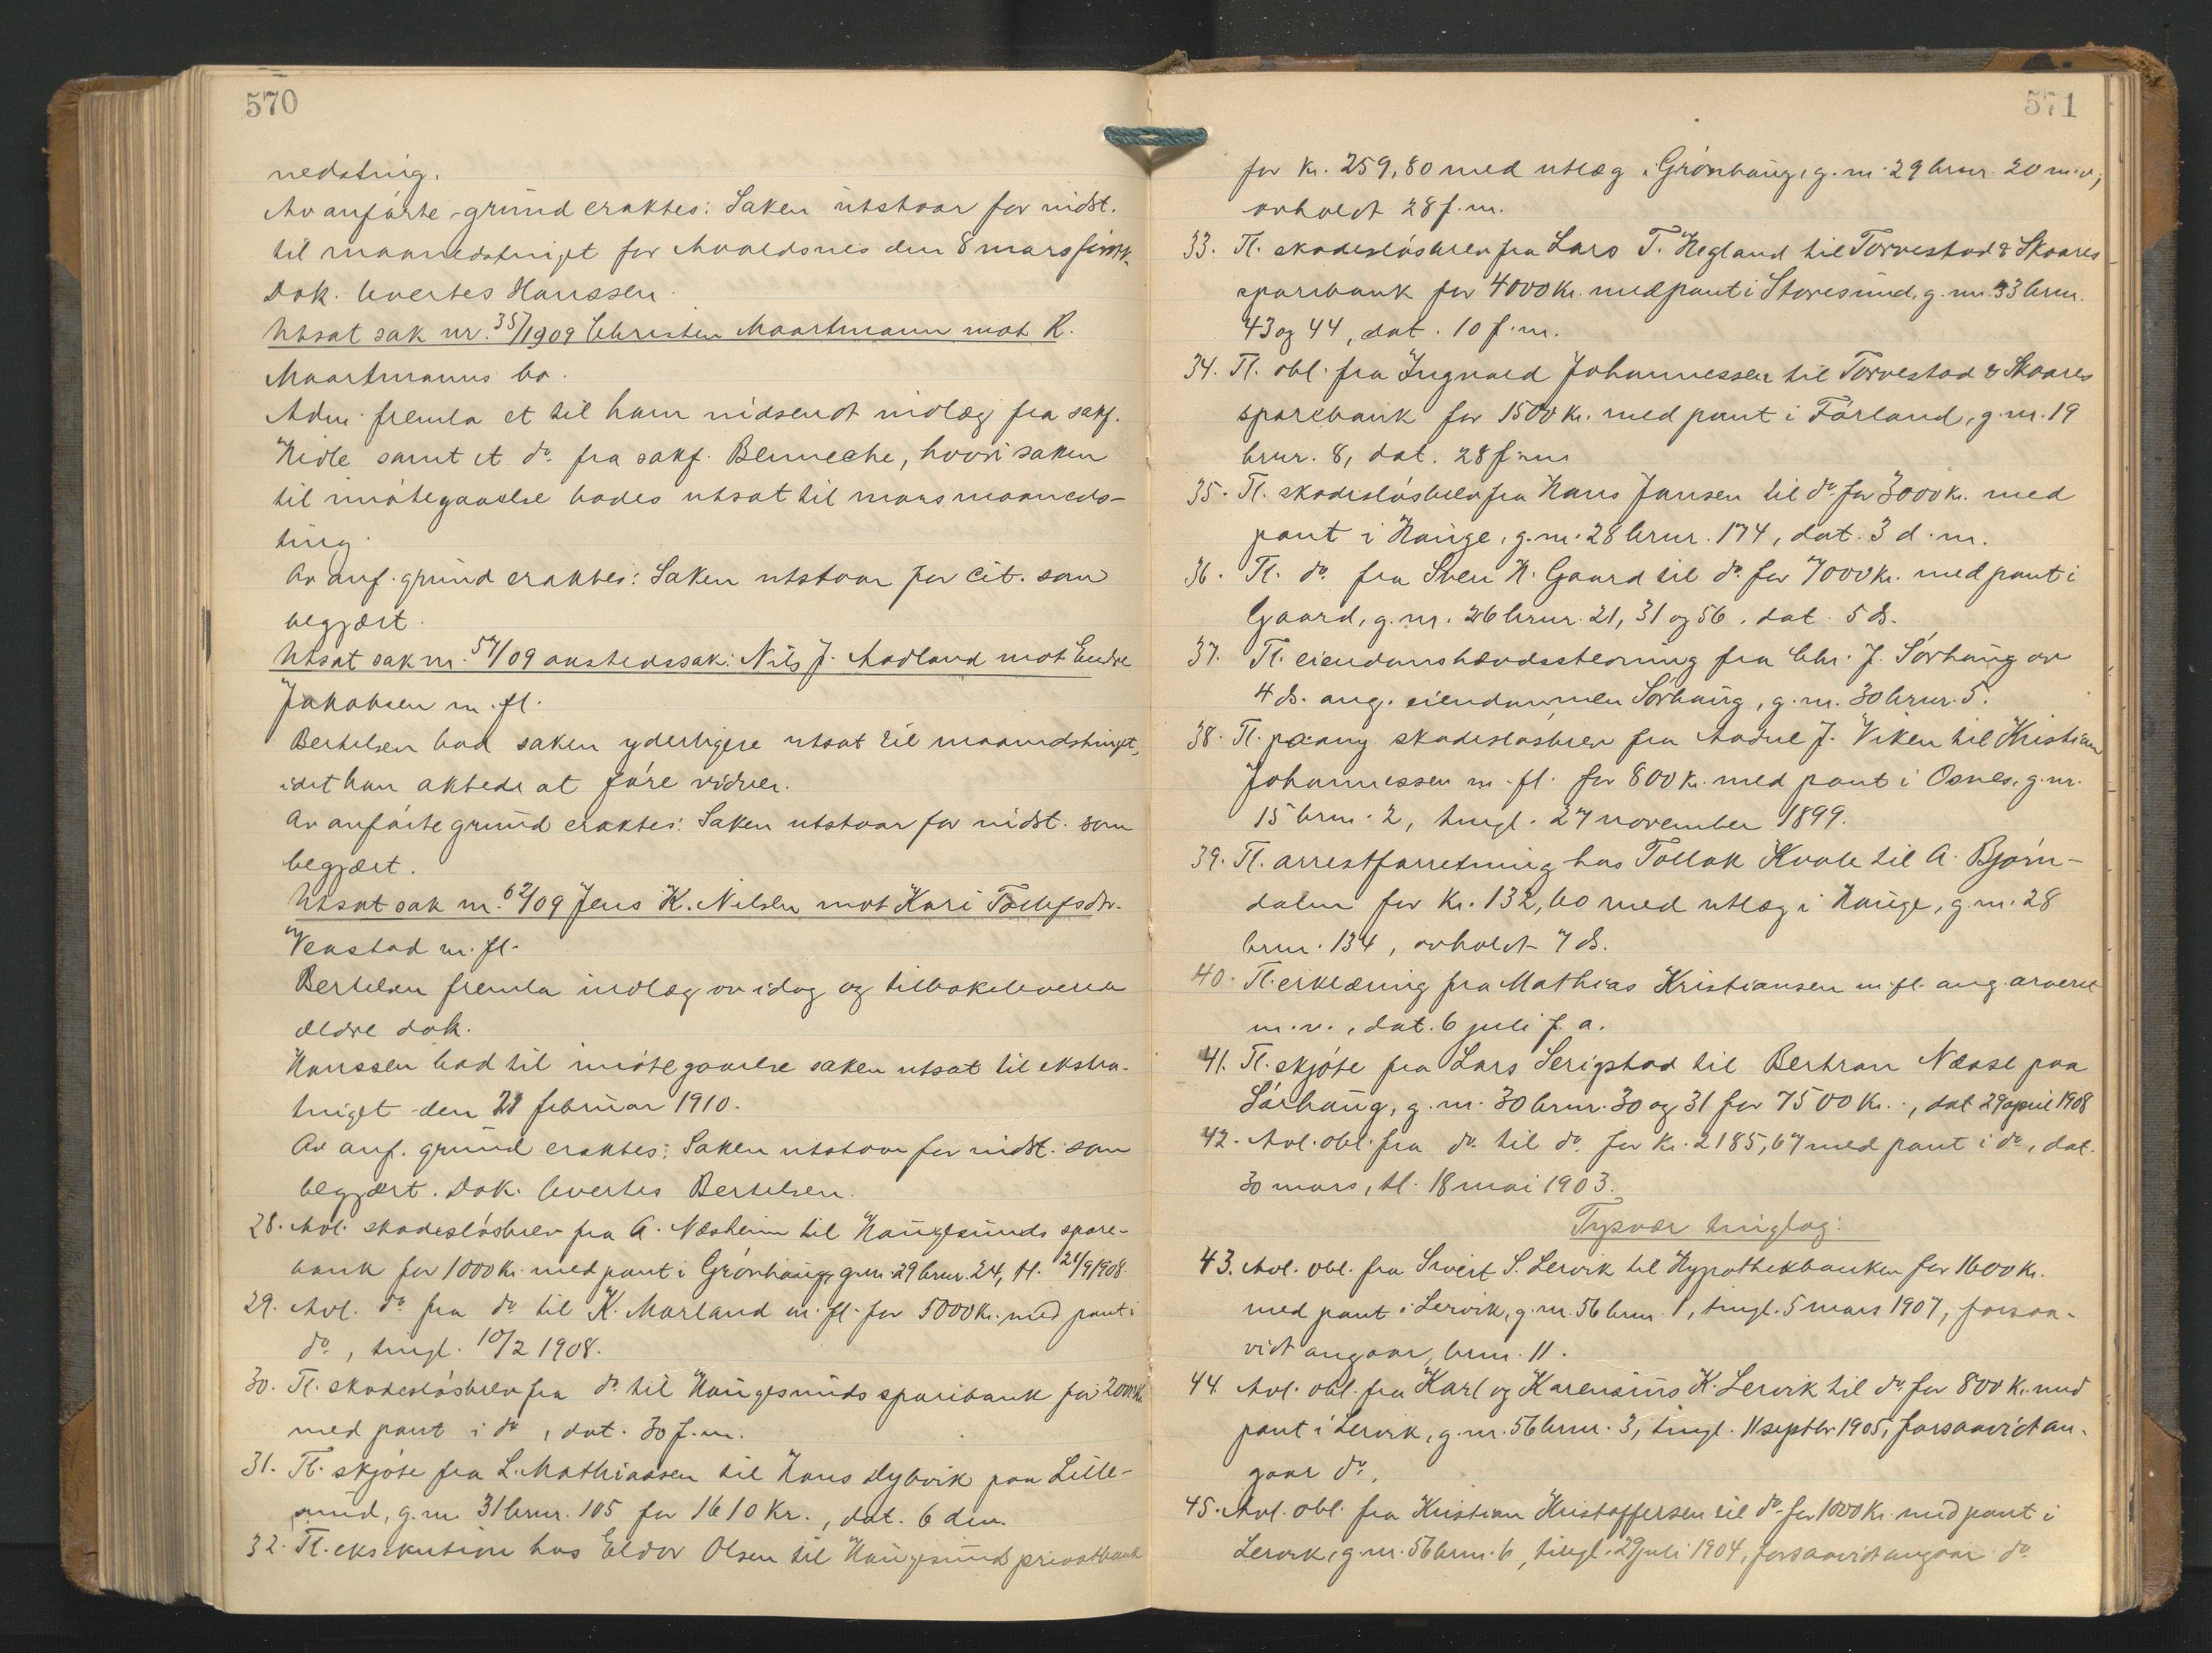 570
nedsting.
Av anførte grund eraktes: Saken utstaar for vidst.
til maanedstinget for Avaldsnes den 8 mars
Dok. levertes Hanssen.
Utsat sak nr. 35/1909 Christen Maartmann mot R.
Maartmanns bo.
Adm. fremla et til ham nidsendt indlæg fra sakf.
Eidle samt et do. fra sakf. Benneche, hvori saken
til imøtegaaelse bades utsat til mars maaneds-
ting.
Av anf. grund eraktes: Saken utstaar for cit. som
begjært.
Utsat sak nr. 57/09 aastedssak: Nils J. Aadland mot Endre
Jakobsen m. fl.
Bertelsen bad saken yderligere utsat til maanedstinget,
idet han aktede at føre vidner.
Av anførte grund eraktes: Saken utstaar for vidst. som
begjært.
Utsat sak nr. 62/09 Jens K. Nilsen mot Kari
m. fl.
Bertelsen fremla indlæg av idag og tilbakeleverte
ældre dok.
Hanssen bad til imøtegaaelse saken utsat til ekstra-
tinget den 28 februar 1910.
Av anf. grund eraktes: Saken utstaar for vidst. som
begjært. Dok. levertes Bertelsen.
28. Avl. skadesløsbrev fra A. Næsheim til Haugesunds spare-
bank for 1000 kr. med pant i Grønhaug, g.nr. 29 brnr. 24, tl. 21/9 1908.
29. Avl. do. fra do. til K. Mørland m. fl. for 5000 kr. med pant i
do., tingl. 10/2 1908.
30. Tl. skadesløsbrev fra do. til Haugesunds sparebank for 2000 kr.
med pant i do., dat. 30 f. m.
31. Tl. skjøte fra L. Mathiassen til Hans Dybvik paa Lille-
sund, g.nr. 31 brnr. 105 for 1610 kr., dat. 6 dm.
32. Tl. eksekution hos Eldor Olsen til Haugesunds privatbank
571
for kr. 259,80 med utlæg i Grønhaug, g. nr. 29 brnr. 20 m. v.,
avholdt 28 f. m.
33. Tl. skadesløsbrev fra Lars T. Hegland til Torvestad & Skaares
sparebank for 4000 kr. med pant i Storesund, g. nr. 33 brnr.
43 og 44, dat. 10 f. m.
34. Tl. obl. fra Ingvald Johannessen til Torvestad & Skaares
sparebank for 1500 kr. med pant i Førland, g. nr. 19
brnr. 8, dat. 28 f. m.
35. Tl. skadesløsbrev fra Hans Jansen til do. for 3000 kr. med
pant i Hauge, g. nr. 28 brnr. 174, dat. 3 d. m.
36. Tl. do. fra Sven N. Gaard til do. for 7000 kr. med pant i
Gaard, g. nr. 26 brnr. 21, 31 og 56, dat. 5 ds.
37. Tl. eiendomshævdserklæring fra Chr. J. Sørhaug av
4 ds. ang. eiendommen Sørhaug, g. nr. 30 brnr. 5.
38. Tl. paany skadesløsbrev fra Aadne J. Viken til Kristian
Johannessen m. fl. for 800 kr. med pant i Osnes, g. nr.
15 brnr. 2, tingl. 27 november 1899.
39. Tl. arrestforretning hos Tollak Kvale til A. Bjørn-
dalen for kr. 132,60 med utlæg i Hauge, g. nr. 28
brnr. 134, avholdt 7 ds.
40. Tl. erklæring fra Mathias Kristiansen m. fl. ang. arveret
m. v., dat. 6 juli f. a.
41. Tl. skjøte fra Lars Serigstad til Bertran Næsse paa
Sørhaug, g. nr. 30 brnr. 30 og 31 for 7500 kr., dat. 29 april 1908
42. Avl. obl. fra do. til do. for kr. 2185,67 med pant i do., dat.
30 mars, tl. 18 mai 1903.
Tysvær tinglag:
43. Avl. obl. fra Sivert S. Lervik til Hypothekbanken for 1600 kr.
med pant i Lervik, g. nr. 56 brnr. 1, tingl. 5 mars 1907, forsaa-
vidt angaar brnr. 11.
44. Avl. obl. fra Karl og Karensius K. Lervik til do. for 800 kr. med
pant i Lervik, g. nr. 56 brnr. 3, tingl. 11 septbr. 1905, forsaavidt an-
gaar do.
45. Avl. obl. fra Kristian Kristoffersen til do. for 1000 kr. med pant i
Lervik, g. nr. 56 brnr. 6, tingl. 29 juli 1904, forsaavidt angaar do.